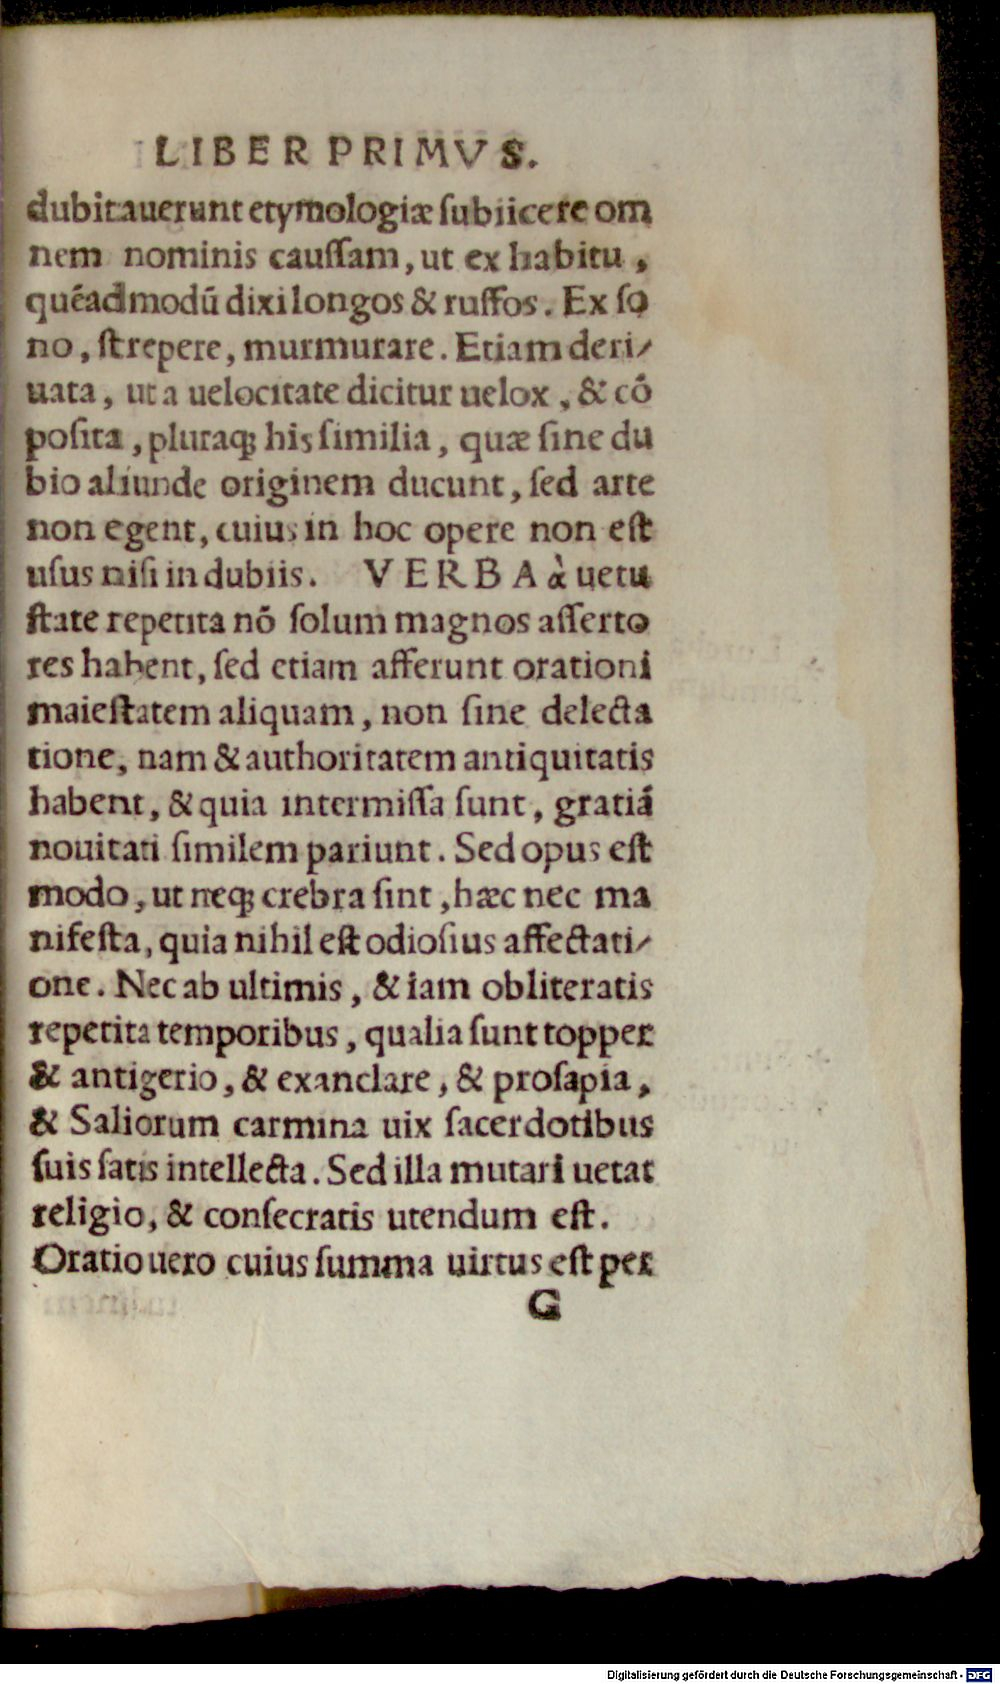 LIBER PRIMVS.
dubitauerunt etymologiæ ſubiicere om
nem nominis cauſſam, ut ex habitu,
quẽadmodũ dixi longos & ruffos. Ex ſo
no, ſtrepere, murmurare. Etiam deri⸗
uata, ut a uelocitate dicitur uelox, & cõ
poſita, pluraꝗ; his ſimilia, quæ ſine du
bio aliunde originem ducunt, ſed arte
non egent, cuius in hoc opere non eſt
uſus niſi in dubiis. VERBA à uetu
ſtate repetita nõ ſolum magnos aſſerto
res habent, ſed etiam afferunt orationi
maieſtatem aliquam, non ſine delecta
tione, nam & authoritatem antiquitatis
habent, & quia intermiſſa ſunt, gratiã
nouitati ſimilem pariunt. Sed opus eſt
modo, ut neꝗ; crebra ſint, hæc nec ma
nifeſta, quia nihil eſt odioſius affectati⸗
one. Nec ab ultimis, & iam obliteratis
repetita temporibus, qualia ſunt topper
& antigerio, & exanclare, & proſapia,
& Saliorum carmina uix ſacerdotibus
ſuis ſatis intellecta. Sed illa mutari uetat
religio, & conſecratis utendum eſt.
Oratio uero cuius ſumma uirtus eſt per
G
Digitalisierung gefördert durch die Deutsche Forschungsgemeinschaft - DFG